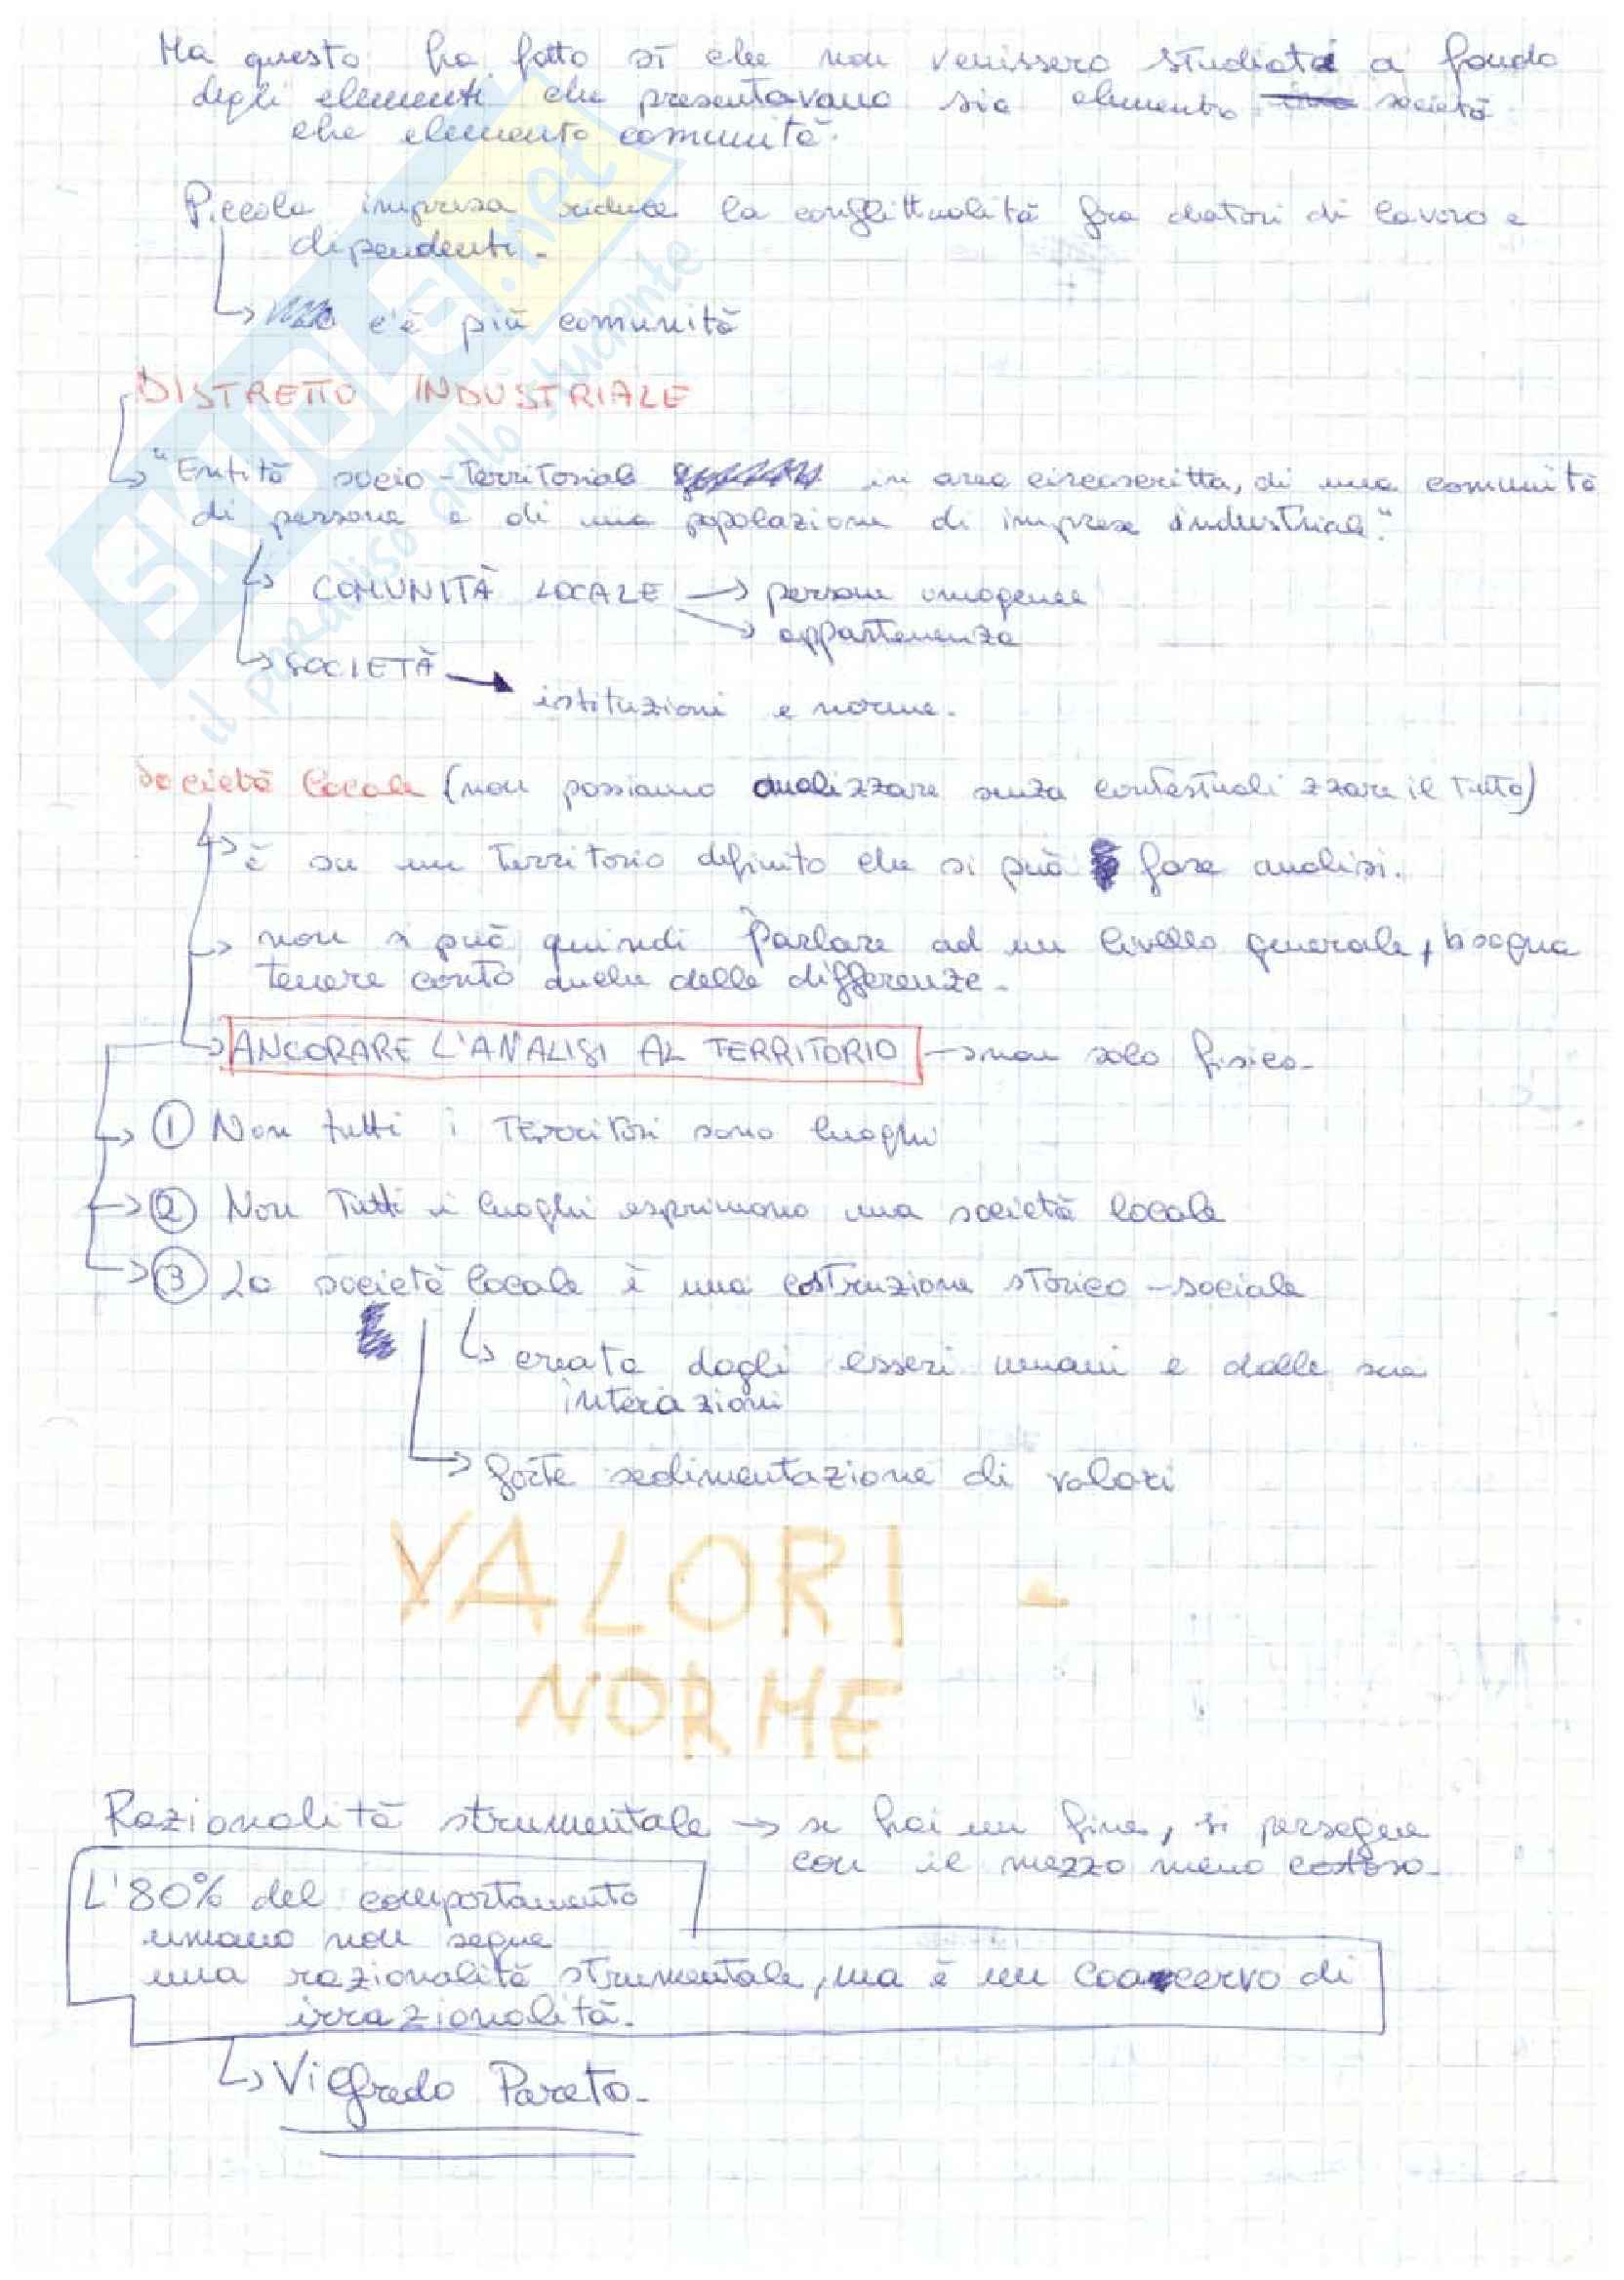 Ma questo ha fatto sì che non venissero studiati a fondo
degli elementi che presentavano sia elemento società
che elemento comunità.
Piccola impresa riduce la conflittualità fra datori di lavoro e
dipendenti.
c'è più comunità
DISTRETTO INDUSTRIALE
"Entità socio-territoriale in area circoscritta, di una comunità
di persone e di una popolazione di imprese industriali."
COMUNITÀ LOCALE → persone omogenee
→ appartenenza
SOCIETÀ →
istituzioni e norme.
Società locale (non possiamo analizzare senza contestualizzare il tutto)
è su un territorio definito che si può fare analisi.
non si può quindi parlare ad un livello generale, bisogna
tenere conto anche delle differenze.
ANCORARE L'ANALISI AL TERRITORIO → non solo fisico.
① Non tutti i territori sono luoghi
② Non tutti i luoghi esprimono una società locale
③ La società locale è una costruzione storico-sociale
creata dagli esseri umani e dalle sue
interazioni
forte sedimentazione di valori
VALORI -
NORME
Razionalità strumentale → se hai un fine, si persegue
con il mezzo meno costoso.
L'80% del comportamento
umano non segue
una razionalità strumentale, ma è un coacervo di
irrazionalità.
Vilfredo Pareto.
SKUOLA.net
il paradiso dello studente